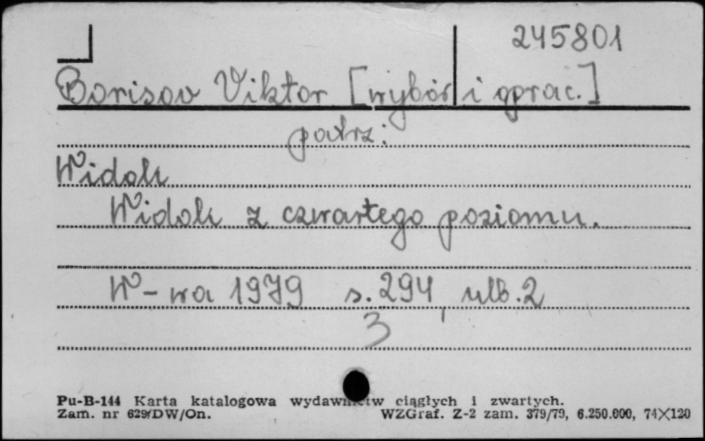 245801
Borisov Viktor [wybór i oprac.]
patrz:
Widok
Widok z czwartego poziomu.
W-wa 1979 s. 294, nlb. 2
3
Pu-B-144 Karta katalogowa wydawnictw ciągłych i zwartych.
Zam. nr 629/DW/On. WZGraf. Z-2 zam. 379/79, 6.250.000, 74×120